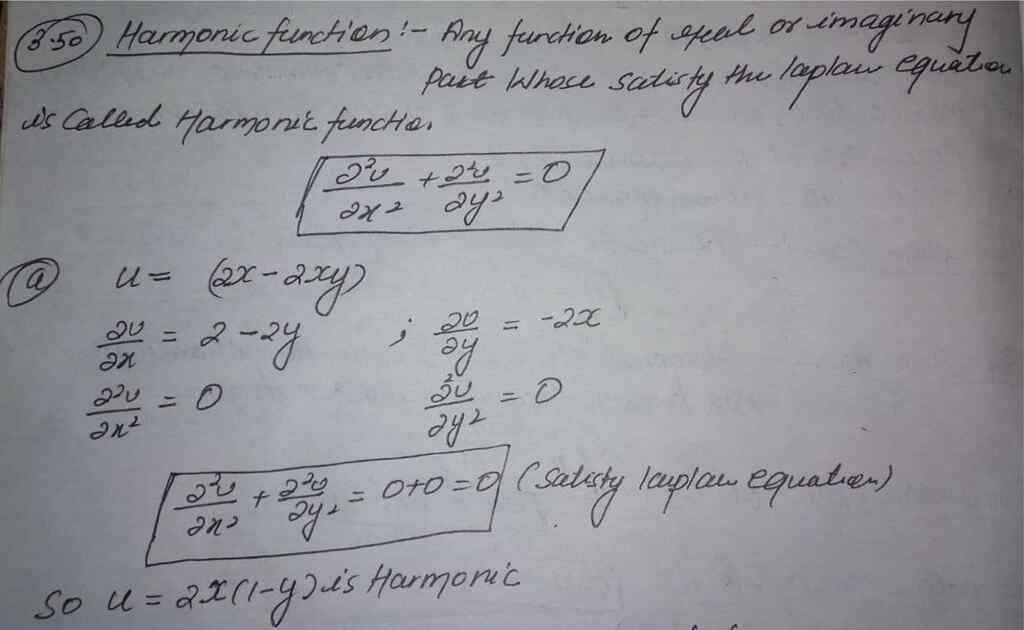 3.50 Harmonic function :- Any function of real or imaginary
Part Whose satisfy the laplace equation
is Called Harmonic function.
∂²u/∂x² + ∂²u/∂y² = 0
(a) u = (2x - 2xy)
∂u/∂x = 2 - 2y ; ∂u/∂y = -2x
∂²u/∂x² = 0 ∂²u/∂y² = 0
∂²u/∂x² + ∂²u/∂y² = 0+0 = 0 (Satisfy laplace equation)
So u = 2x(1-y) is Harmonic